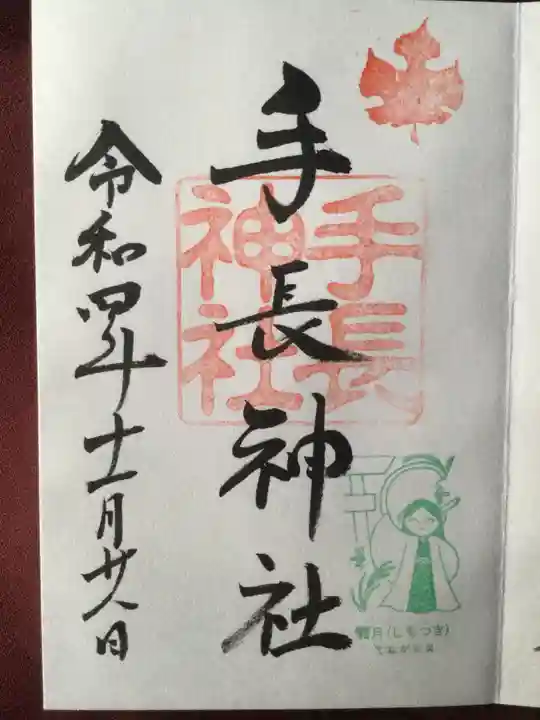 手長神社
手長
神社
令和四年十一月廿八日
霜月(しもつき)